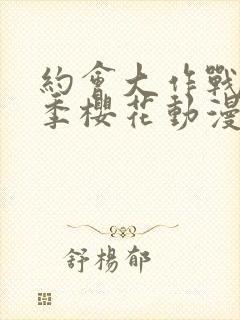 約會大作戰
季櫻花動漫
舒楊郁